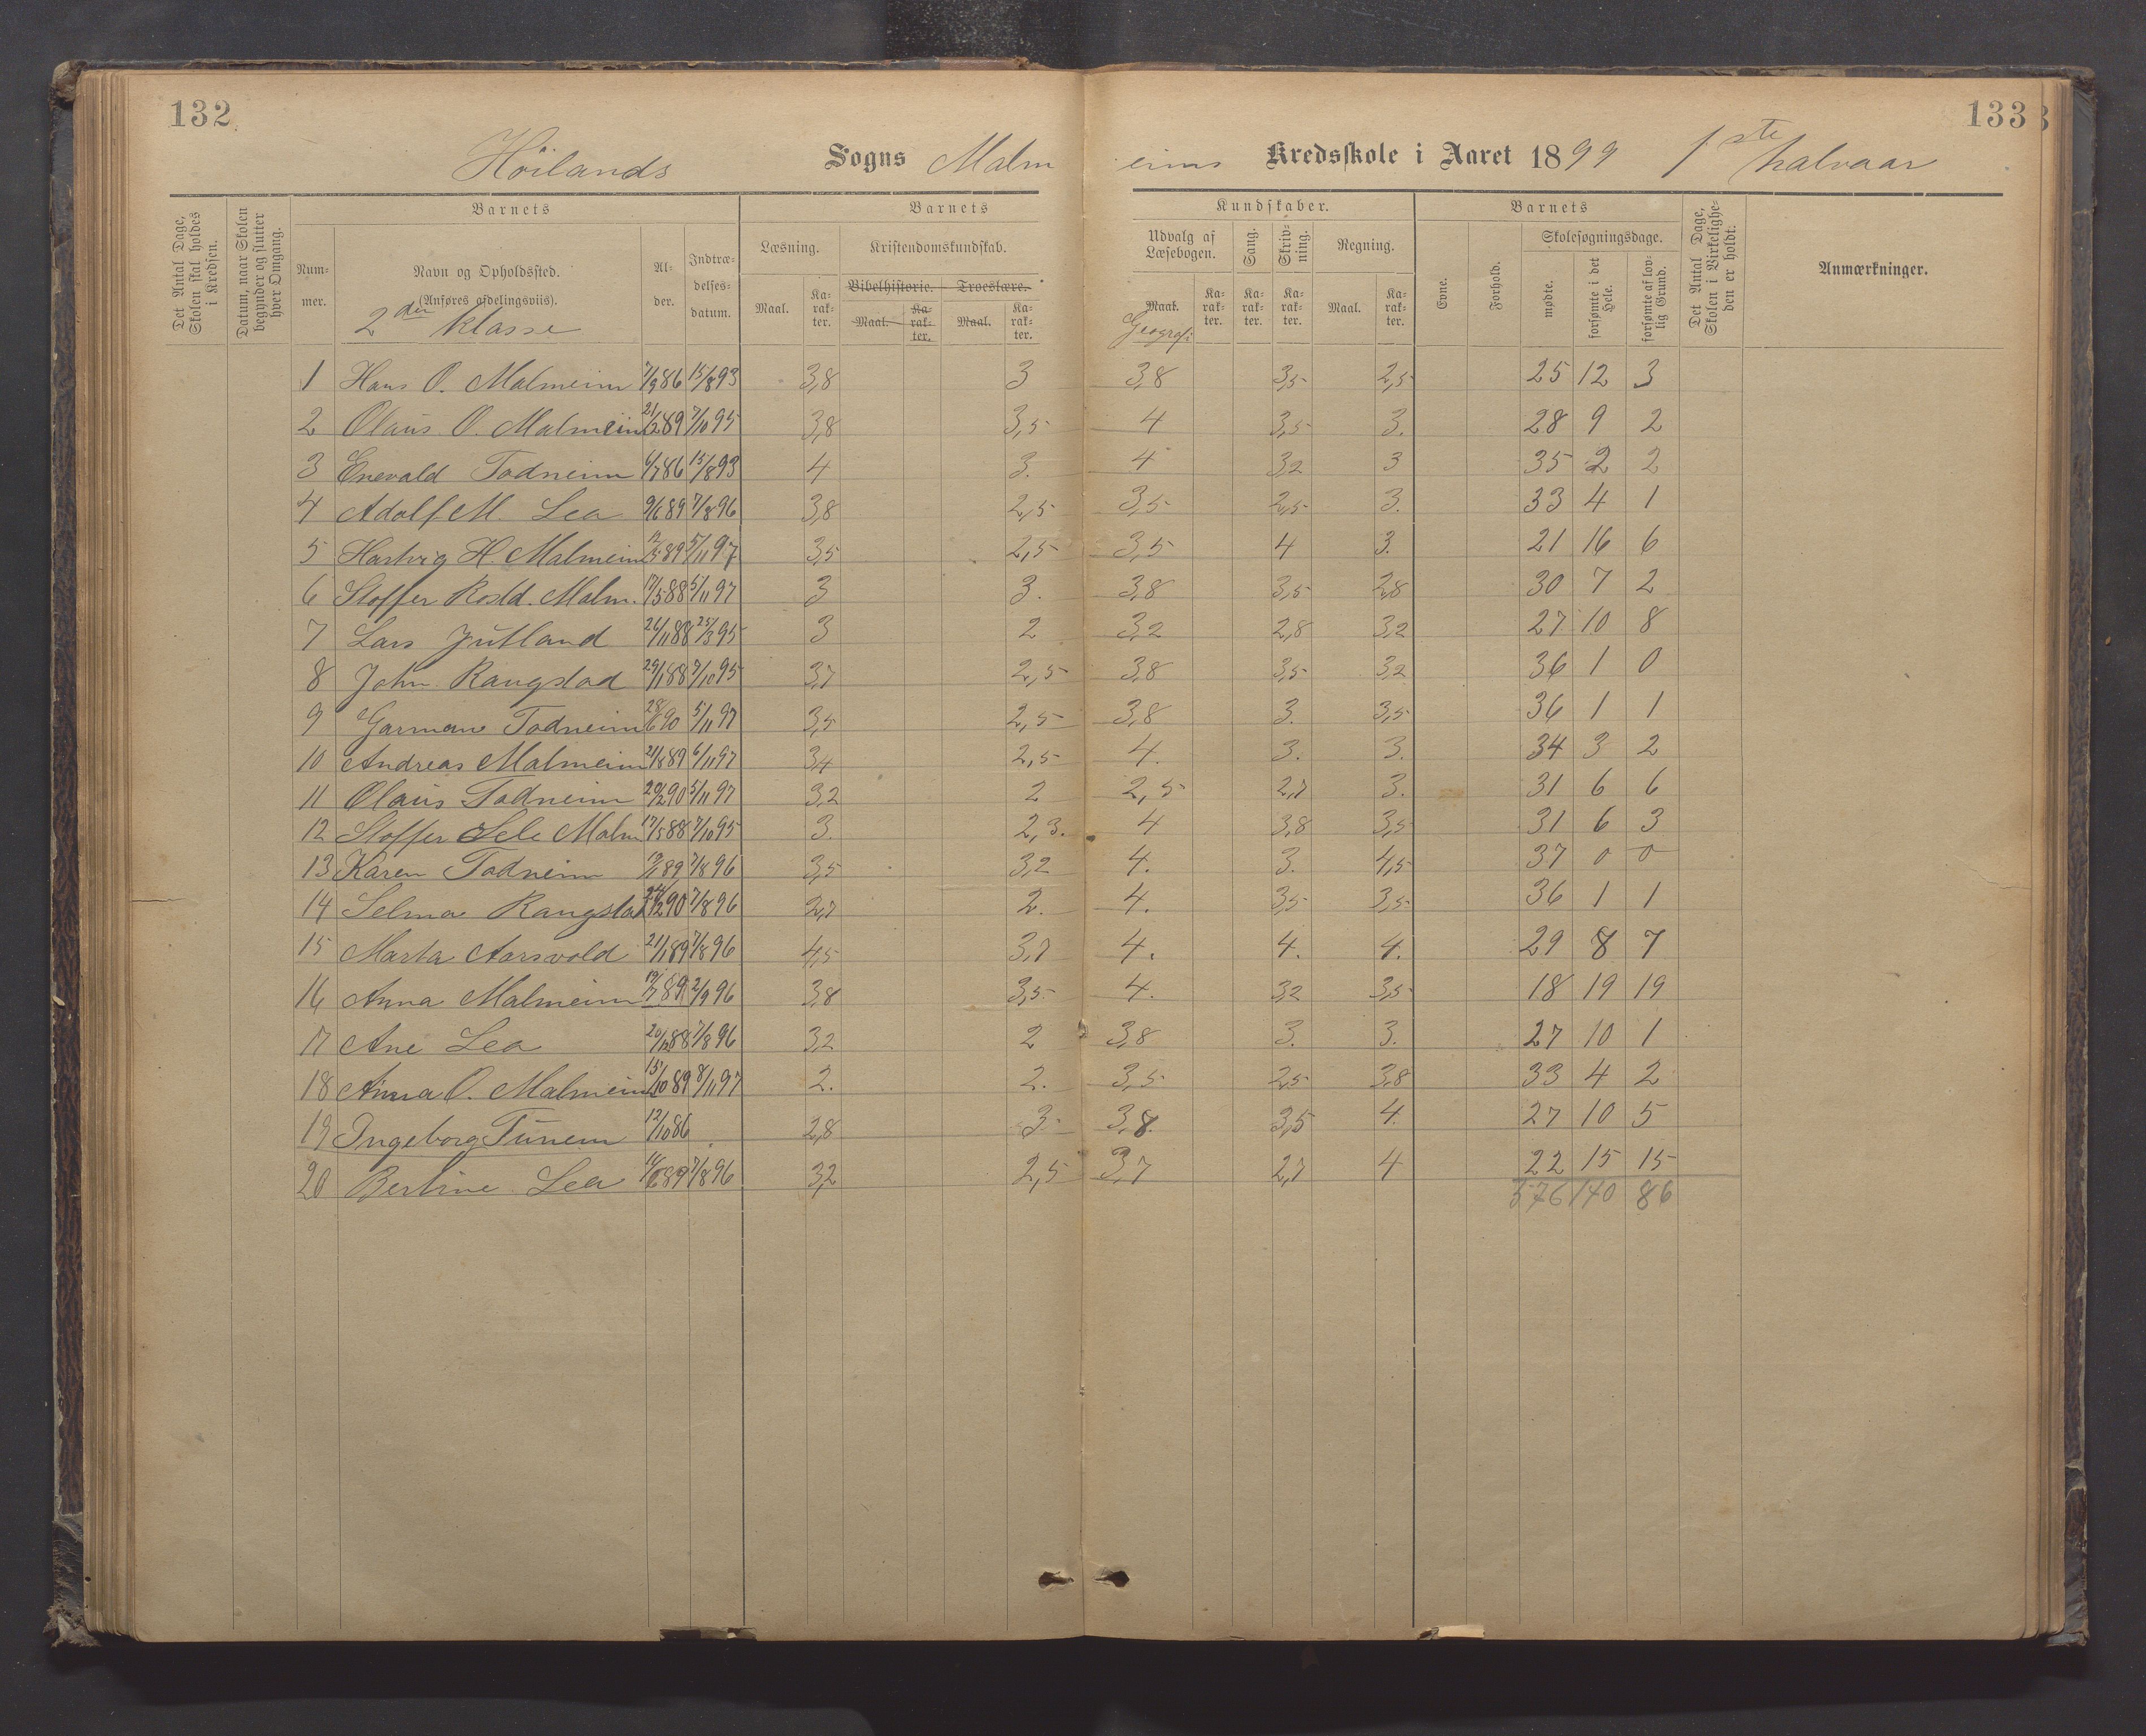 132
133
Höilands Sogns Malm eims Kredsskole i Aaret 1899 1ste halvaar
Det Antal Dage, Skolen skal holdes i Kredsen.
Datum, naar Skolen begynder og slutter hver Omgang.
Barnets
Barnets
Kundskaber.
Barnets
Det Antal Dage, Skolen i Virkeligheden er holdt.
Anmærkninger.
Nummer.
Navn og Opholdssted.
(Anføres afdelingsviis).
2den klasse
Alder.
Indtrædelsesdatum.
Læsning.
Kristendomskundskab.
Bibelhistorie. Troeslære.
Udvalg af Læsebogen.
Sang.
Skrivning.
Regning.
Evne.
Forhold.
Skolesøgningsdage.
Maal. Karakter. Maal. Karakter. Maal. Karakter. Maal. Karakter. Karakter. Karakter. Maal. Karakter.
mødte. forsømte i det Hele. forsømte af lovlig Grund.
Geografi
1 Hans O. Malmeim 7/9 86 15/8 93 3,8 3 3,8 3,5 2,5 25 12 3
2 Olaus O. Malmeim 21/2 89 7/10 95 3,8 3,5 4 3,5 3. 28 9 2
3 Enevald Todneim 6/7 86 15/8 93 4 3. 4 3,2 3 35 2 2
4 Adolf M. Lea 9/6 89 7/8 96 3,8 2,5 3,5 2,5 3. 33 4 1
5 Hartvig H. Malmeim 89 5/11 97 3,5 2,5 3,5 4 3. 21 16 6
6 Stoffer Rosld. Malm. 17/5 88 5/11 97 3 3. 3,8 3,5 2,8 30 7 2
7 Lars Jutland 26/11 88 25/3 95 3 2 3,2 2,8 3,2 27 10 8
8 John Rangstad 29/1 88 7/10 95 3,7 2,5 3,8 3,5 3,2 36 1 0
9 Garman Todneim 28/6 90 5/11 97 3,5 2,5 3,8 3. 3,5 36 1 1
10 Andreas Malmeim 21/8 89 6/11 97 3,4 2,5 4. 3. 3. 34 3 2
11 Olaus Todneim 20/2 90 5/11 97 3,2 2 2,5 2,7 3. 31 6 6
12 Stoffer Sele Malm 17/5 88 7/10 95 3. 2,3. 4 3,8 3,5 31 6 3
13 Karen Todneim 89 7/8 96 3,5 3,2 4. 3. 4,5 37 0 0
14 Selma Rangstad 90 7/8 96 2,7 2. 4. 3,5 3,5 36 1 1
15 Marta Aarsvold 21/1 89 7/8 96 4,5 3,7 4. 4. 4. 29 8 7
16 Anna Malmeim 19/7 89 2/9 96 3,8 3,5 4. 3,2 3,5 18 19 19
17 Ane Lea 20/12 88 7/8 96 3,2 2 3,8 3. 3. 27 10 1
18 Anna O. Malmeim 15/10 89 8/11 97 2. 2. 3,5 2,5 3,8 33 4 2
19 Ingeborg Tunem 12/10 86 2,8 3 3,8. 3,5 4. 27 10 5
20 Bertine Lea 89 7/8 96 3,2 2,5 3,7 2,7 4 22 15 15
576 140 86